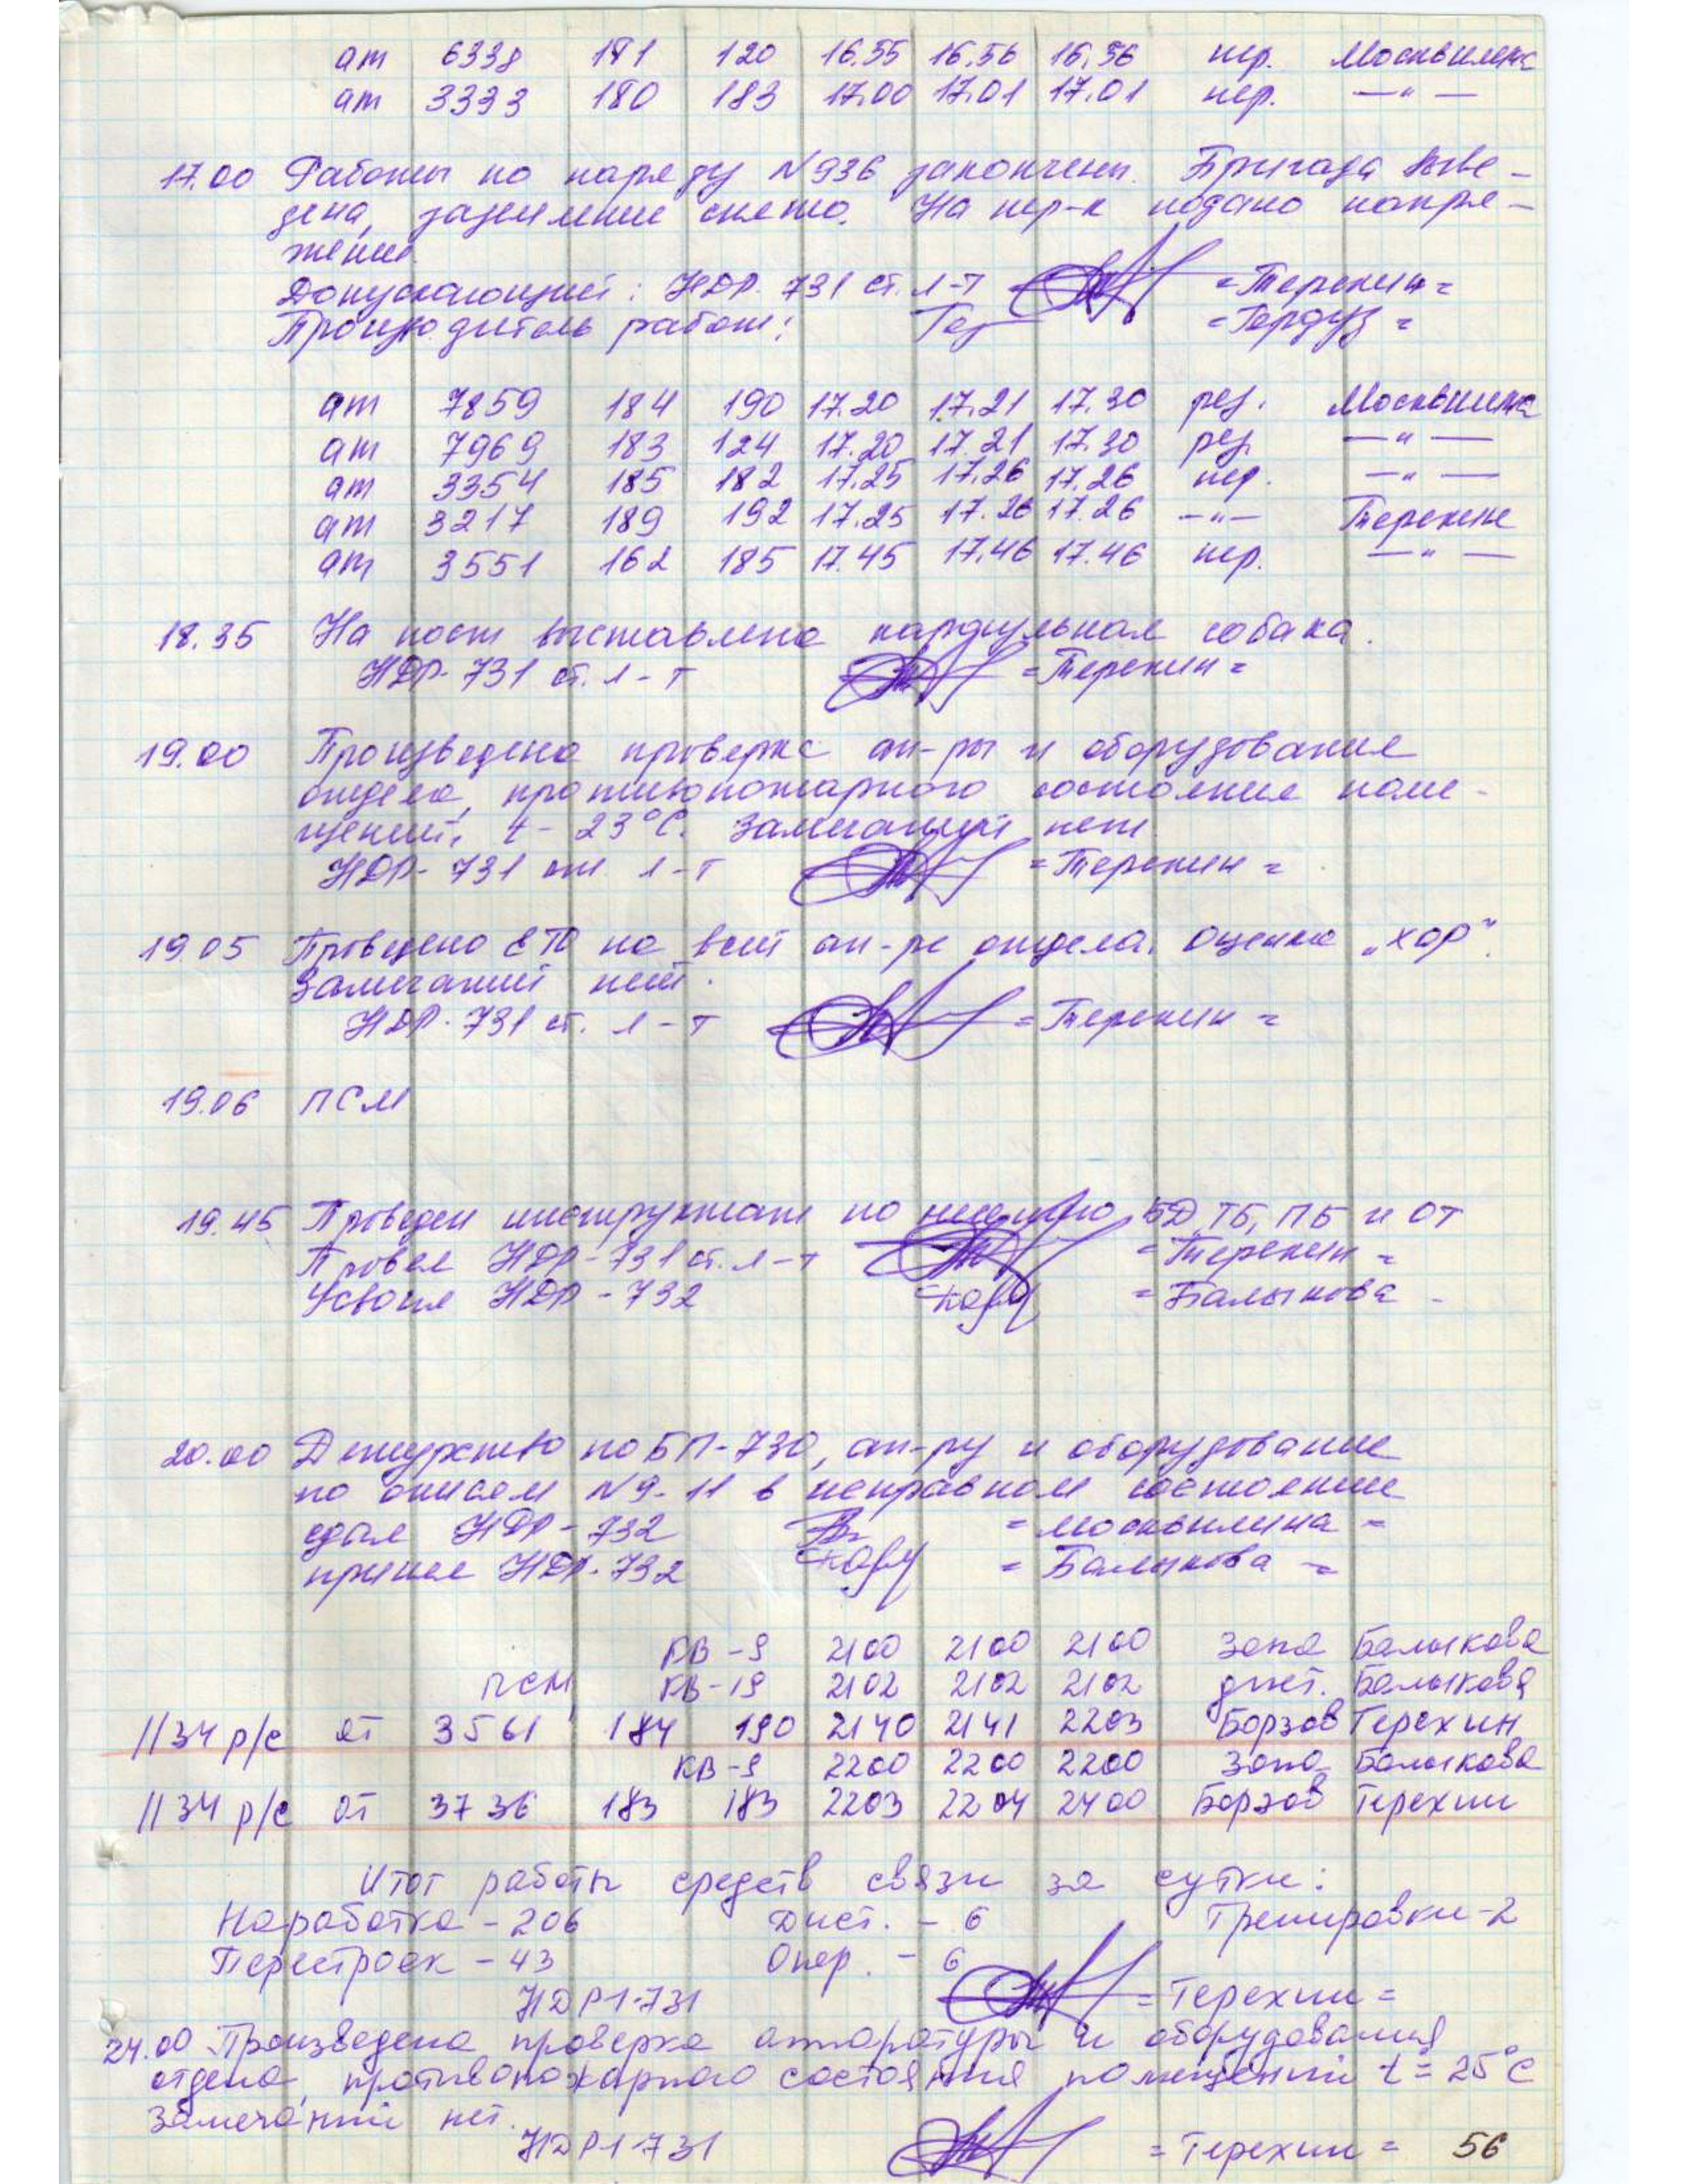 ат 6338 181 120 16.55 16.56 16.56 пер. Москвилина
ат 3333 180 183 17.00 17.01 17.01 пер. —"—
17.00 Работы по наряду N936 закончены. Бригада выве-
дена, заземление снято. На пер-к подано напря-
жение
Допускающий: НДР-731 ст. л-т =Терехин=
Производитель работ: =Гордуз=
ат 7859 184 190 17.20 17.21 17.30 рез. Москвилина
ат 7969 183 124 17.20 17.21 17.30 рез. —"—
ат 3354 185 182 17.25 17.26 17.26 пер. —"—
ат 3217 189 192 17.25 17.26 17.26 —"— Терехин
ат 3551 162 185 17.45 17.46 17.46 пер. —"—
18.35 На пост выставлена караульная собака.
НДР-731 ст. л-т =Терехин=
19.00 Произведена проверка ап-ры и оборудования
отдела, противопожарного состояния поме-
щений, t- 23°C. Замечаний нет.
НДР-731 ст. л-т =Терехин=
19.05 Проведено ЕТО на всей ап-ре отдела. Оценка „хор".
Замечаний нет.
НДР-731 ст. л-т =Терехин=
19.06 ПСМ
19.45 Проведен инструктаж по несению БД, ТБ, ПБ и ОТ
Провел НДР-731 ст. л-т =Терехин=
Усвоил НДР-732 =Балыкова-
20.00 Дежурство по БП-730, ап-ру и оборудование
по описям N9-11 в исправном состоянии
сдал НДР-732 =Москвилина=
принял НДР-732 =Балыкова=
КВ-9 2100 2100 2100 Зона Балыкова
ПСМ КВ-19 2102 2102 2102 дист. Балыкова
1134 р/с от 3561 184 190 2140 2141 2203 Борзов Терехин
КВ-9 2200 2200 2200 Зона Балыкова
1134 р/с от 3736 183 183 2203 2204 2400 Борзов Терехин
Итог работы средств связи за сутки:
Наработка - 206 Дист. - 6 Тренировки-2
Перестроек - 43 Опер. - 6
НДР1-731 =Терехин=
24.00 Произведена проверка аппаратуры и оборудования
отдела, противопожарного состояния помещений t=25°C
Замечаний нет.
НДР1-731 =Терехин= 56